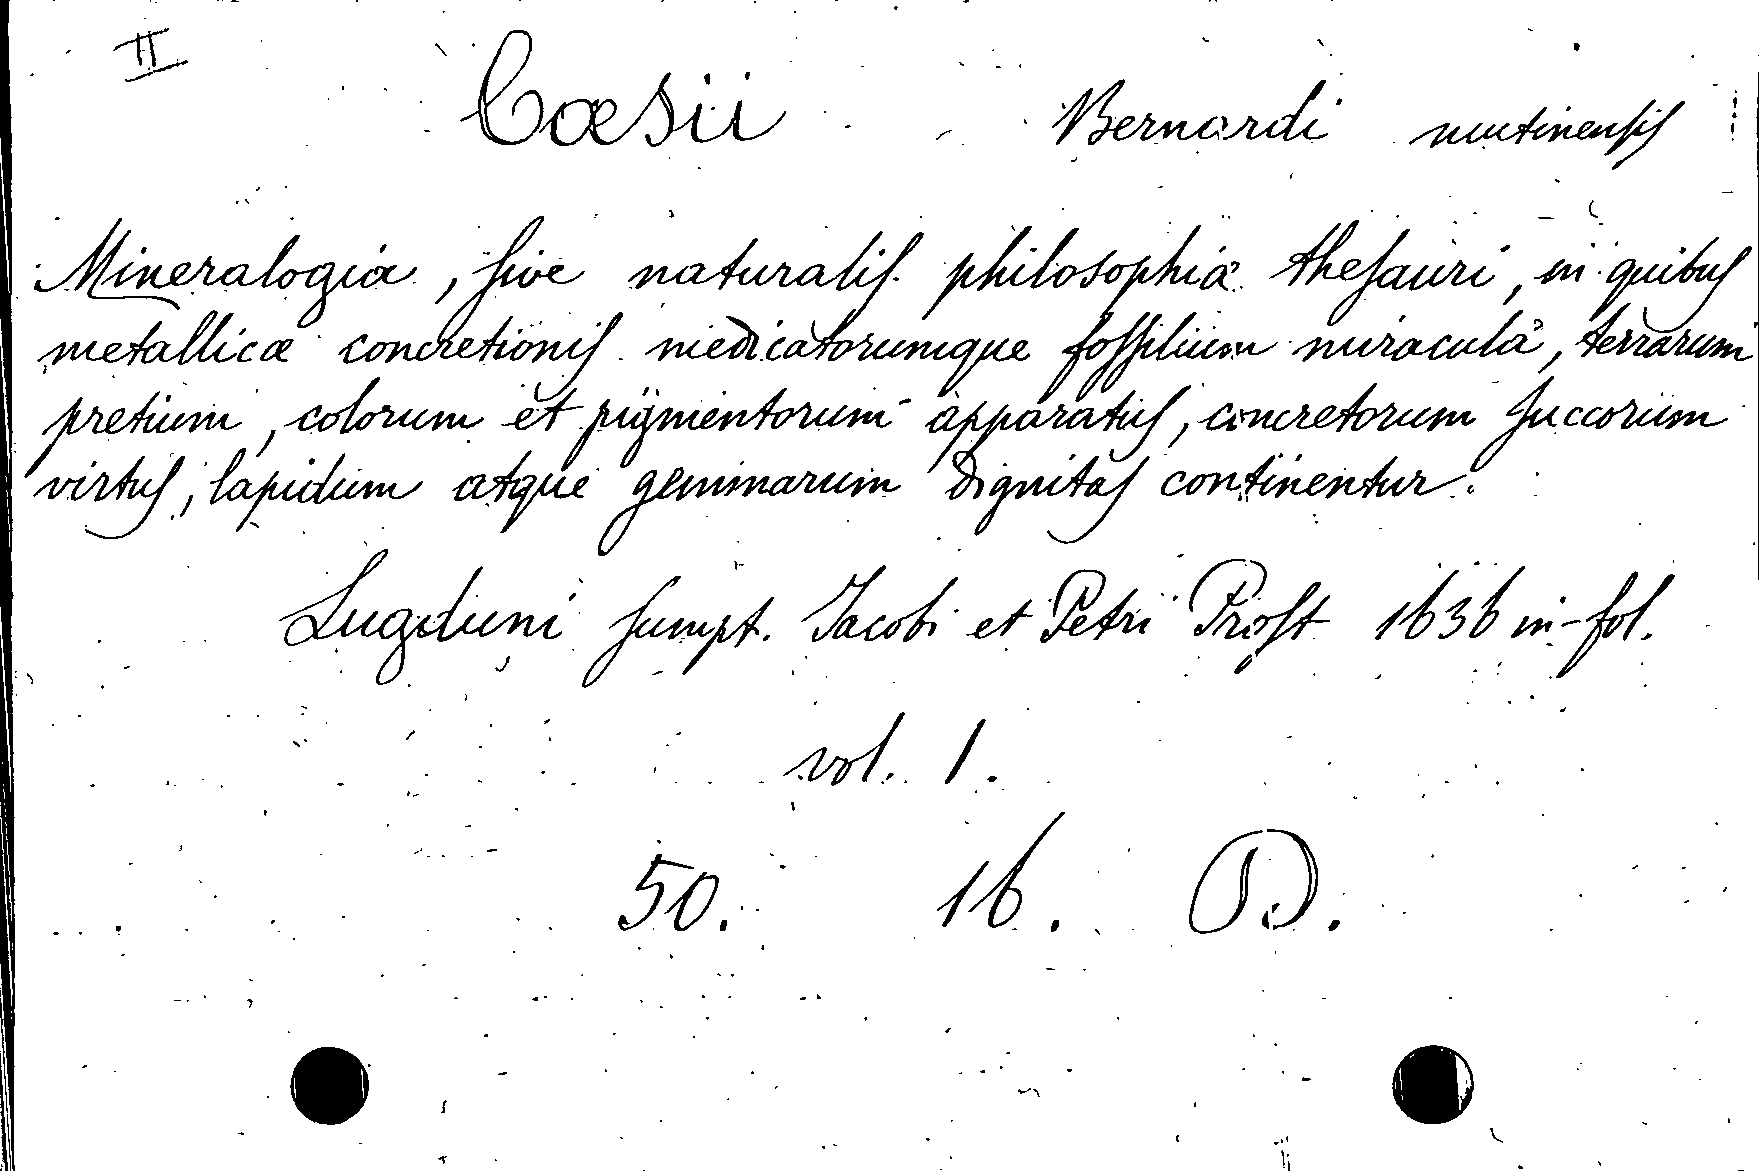 II
Cæsii Bernardi mutinensis
Mineralogia, sive naturalis philosophiæ thesauri, in quibus
metallicæ concretionis medicatorumque fossilium miracula, terrarum
pretium, colorum et pigmentorum apparatus, concretorum succorum
virtus, lapidum atque gemmarum dignitas continentur.
Lugduni sumpt. Jacobi et Petri Prost 1636 in-fol.
vol. 1.
50. 16. D.